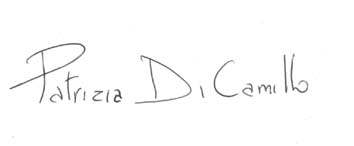 Patrizia Di Camillo